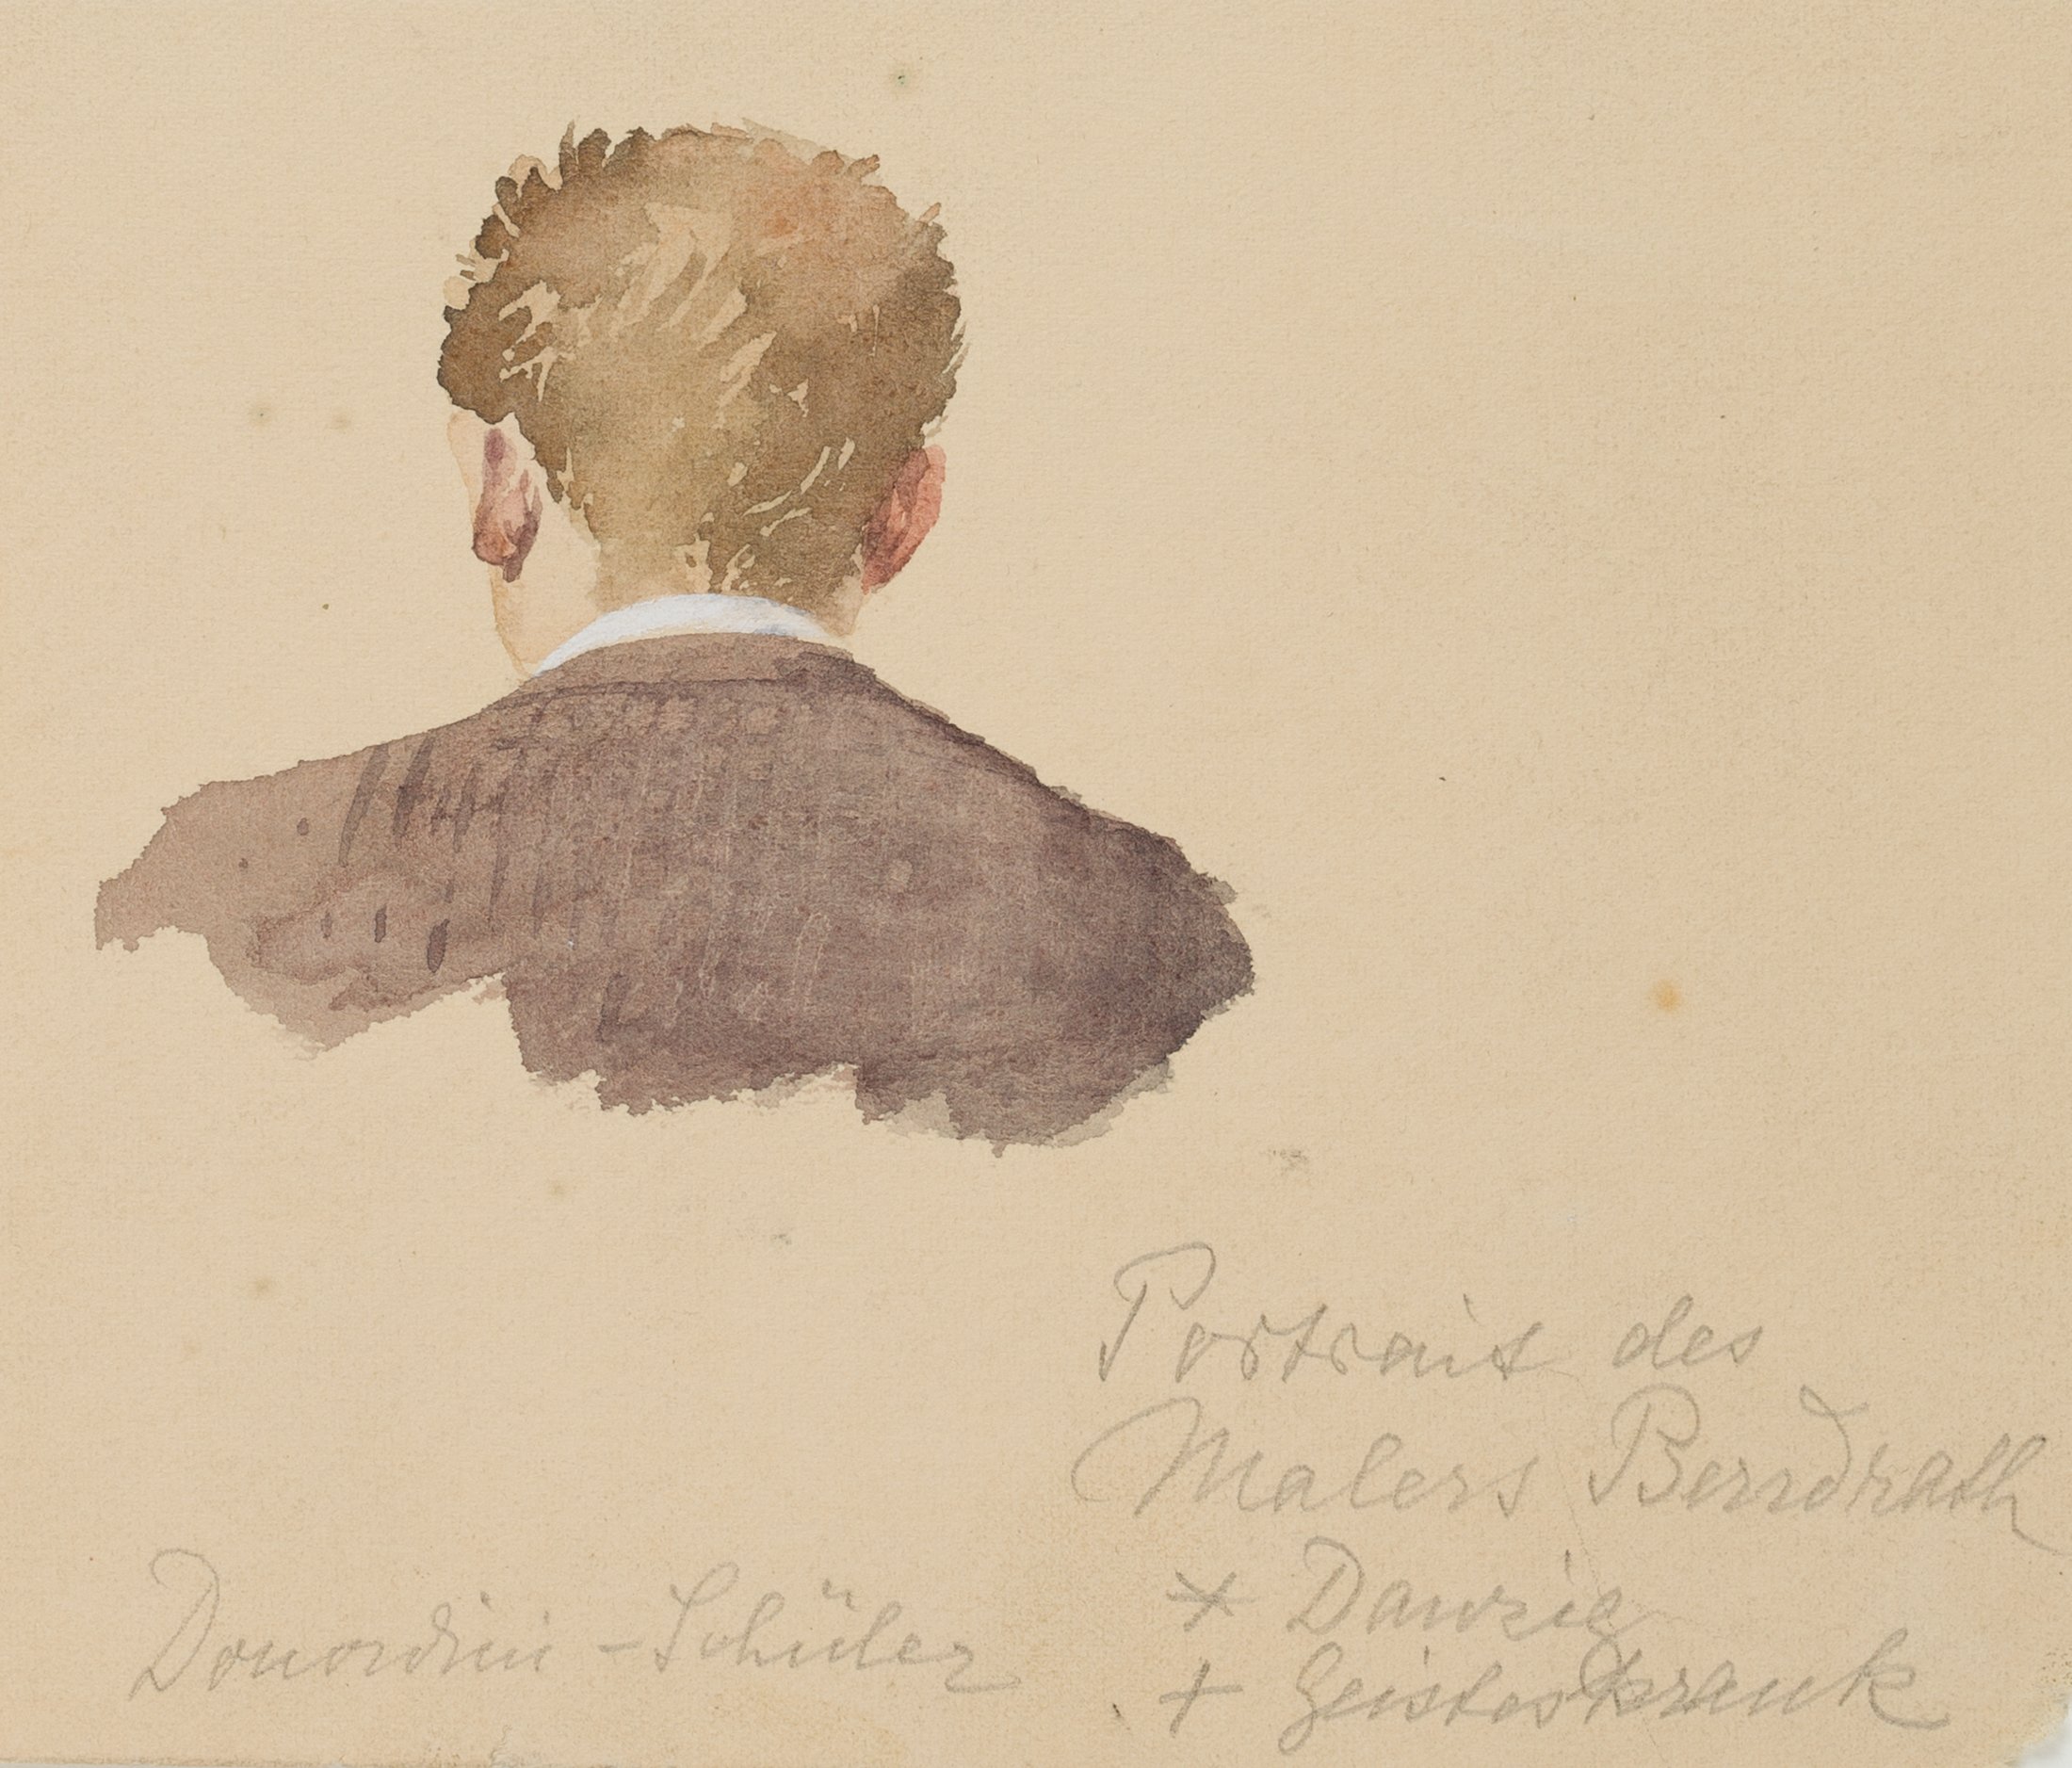 Portrait des
Malers Berndrath
* Danzig
+ Geisteskrank
Donordini - Schüler